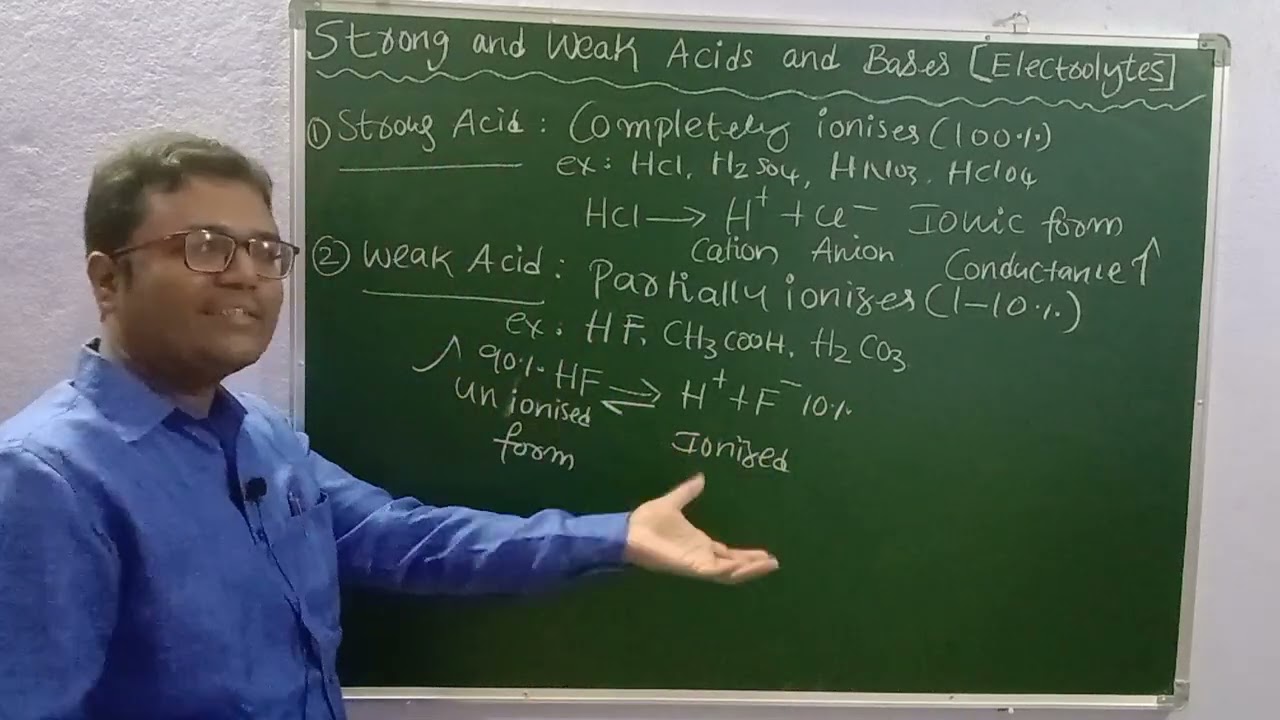 Strong and Weak Acids and Bases [Electrolytes]
① Strong Acid : Completely ionises (100%)
ex: HCl, H2SO4, HNO3, HClO4
HCl → H+ + Cl− Ionic form
Cation Anion Conductance ↑
② Weak Acid : Partially ionizes (1-10%)
ex: HF, CH3COOH, H2CO3
90% HF ⇌ H+ + F− 10%
unionised Ionized
form